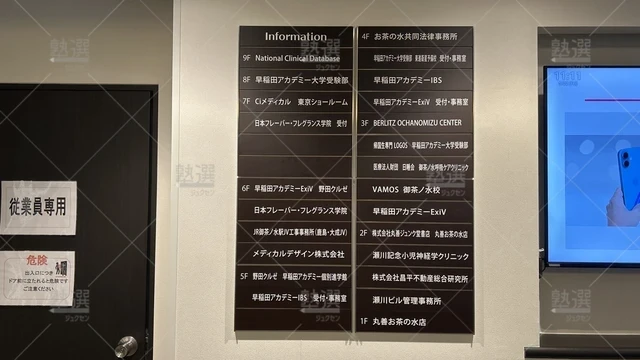 Information
9F National Clinical Database
8F 早稲田アカデミー大学受験部
7F Ciメディカル 東京ショールーム
日本フレーバー・フレグランス学院 受付
6F 早稲田アカデミーExiV 野田クルゼ
日本フレーバー・フレグランス学院
JR御茶ノ水駅JV工事事務所(鹿島・大成JV)
メディカルデザイン株式会社
5F 野田クルゼ 早稲田アカデミー個別進学館
早稲田アカデミーIBS 受付・事務室
4F お茶の水共同法律事務所
早稲田アカデミー大学受験部 受付・事務室
早稲田アカデミーIBS
早稲田アカデミーExiV 受付・事務室
3F BERLITZ OCHANOMIZU CENTER
帰国生専門 LOGOS 早稲田アカデミー大学受験部
医療法人財団 日睡会 御茶ノ水呼吸ケアクリニック
VAMOS 御茶ノ水校
早稲田アカデミーExiV
2F 株式会社丸善ジュンク堂書店 丸善お茶の水店
瀬川記念小児神経学クリニック
株式会社昌平不動産総合研究所
瀬川ビル管理事務所
1F 丸善お茶の水店
従業員専用
危険
出入口につき
ドア前に立たれると危険です
ご注意ください
塾選
ジュクセン